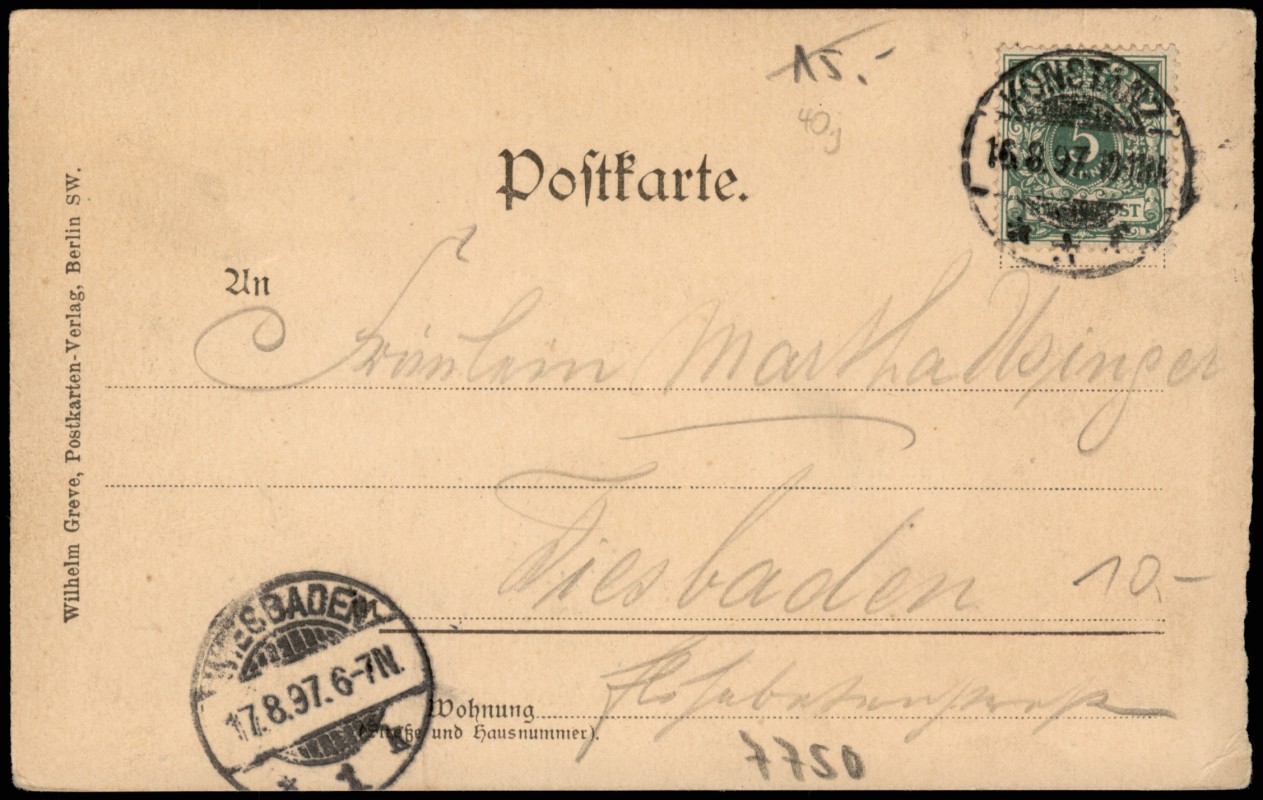 15.-
40,-
KONSTANZ
16.8.97.
5
Postkarte.
An
Fräulein Martha Usinger
Wiesbaden
10.-
Wohnung
(Straße und Hausnummer).
7720
WIESBADEN
17.8.97.6-7N.
* 1 k
Wilhelm Greve, Postkarten-Verlag, Berlin SW.